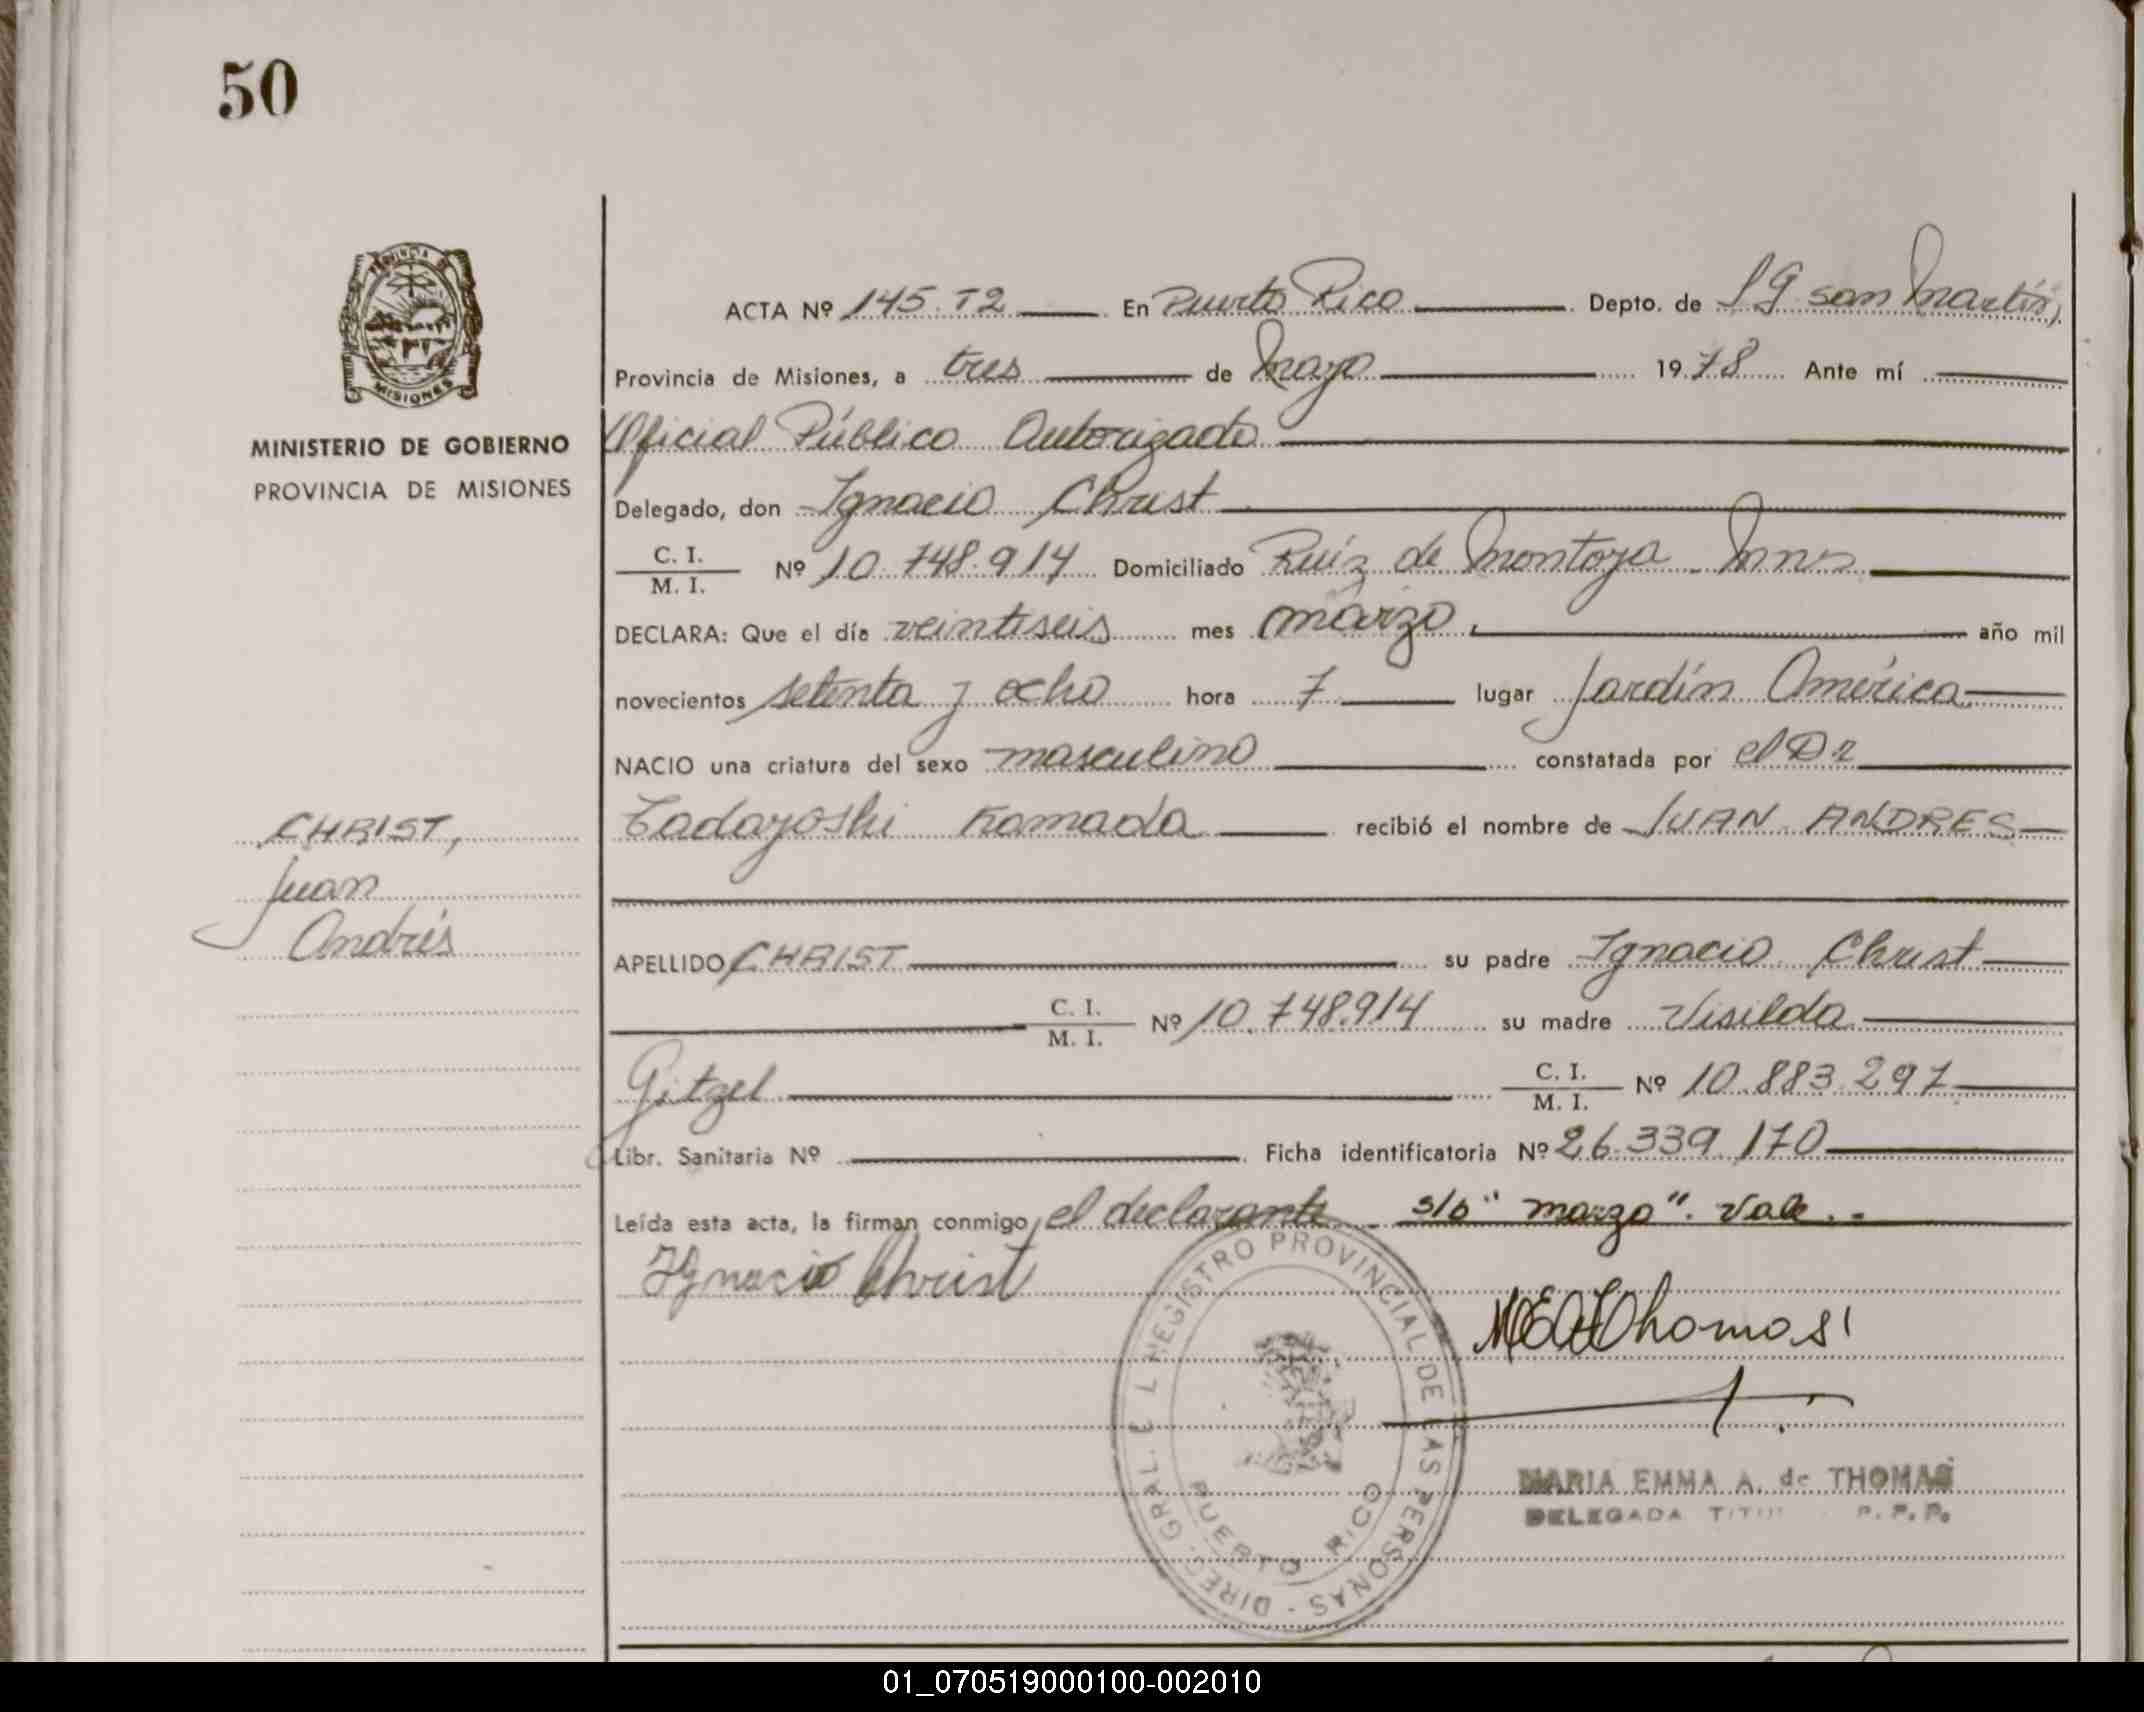 50
PROVINCIA DE
MISIONES
MINISTERIO DE GOBIERNO
PROVINCIA DE MISIONES
CHRIST,
Juan
Andrés
ACTA Nº 145. T2 En Puerto Rico Depto. de L G San Martín,
Provincia de Misiones, a tres de Mayo 1978 Ante mí
Oficial Público Autorizado
Delegado, don Ignacio Christ
C. I.
M. I. Nº 10.748.914 Domiciliado Ruíz de Montoya - Mnes
DECLARA: Que el día veintiseis mes marzo. año mil
novecientos setenta y ocho hora 7 lugar Jardín América
NACIO una criatura del sexo masculino constatada por el Dr
Tadayoshi Kamada recibió el nombre de JUAN ANDRES
APELLIDO CHRIST su padre Ignacio Christ
C. I.
M. I. Nº 10.748.914 su madre Visilda
Gitzel C. I.
M. I. Nº 10.883.297
Libr. Sanitaria Nº Ficha identificatoria Nº 26.339.170
Leída esta acta, la firman conmigo, el declarante. s/b "marzo". Vale.-
Ignacio Christ
DIREC. GRAL. E L REGISTRO PROVINCIAL DE LAS PERSONAS -
PUERTO RICO
MEAThomas
MARIA EMMA A. de THOMAS
DELEGADA P. P. P.
01_070519000100-002010